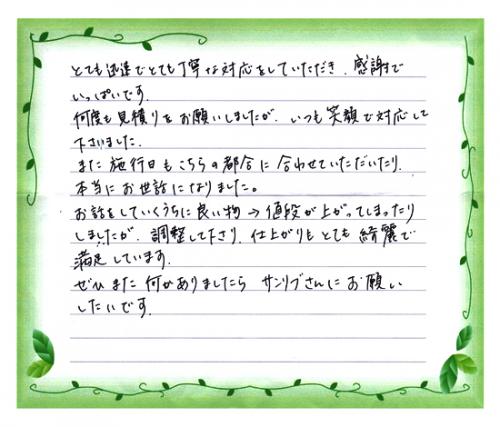 とても迅速でとても丁寧な対応をしていただき、感謝で
いっぱいです。
何度も見積りをお願いしましたが、いつも笑顔で対応して
下さいました。
また施行日もこちらの都合に合わせていただいたり、
本当にお世話になりました。
お話をしていくうちに良い物→値段が上がってしまったり
しましたが、調整して下さり、仕上がりもとても綺麗で
満足しています。
ぜひまた何かありましたら サンリブさんにお願い
したいです。